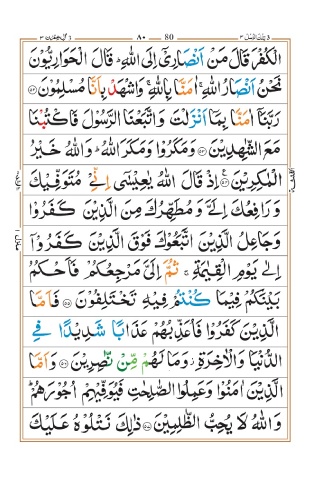 تلك الرسل ٣ ٨٠ 80 ال عمرٰن ٣
الْكُفْرَ قَالَ مَنْ اَنْصَارِىْۤ اِلَى اللّٰهِ ؕ قَالَ الْحَوَارِيُّوْنَ
نَحْنُ اَنْصَارُ اللّٰهِ ۚ اٰمَنَّا بِاللّٰهِ ۚ وَاشْهَدْ بِاَنَّا مُسْلِمُوْنَ ﴿۵۲﴾
رَبَّنَاۤ اٰمَنَّا بِمَاۤ اَنْزَلْتَ وَاتَّبَعْنَا الرَّسُوْلَ فَاكْتُبْنَا
مَعَ الشّٰهِدِيْنَ ﴿۵۳﴾ وَمَكَرُوْا وَمَكَرَ اللّٰهُ ؕ وَاللّٰهُ خَيْرُ
الْمٰكِرِيْنَ ﴿۵۴﴾ اِذْ قَالَ اللّٰهُ يٰعِيْسٰۤى اِنِّىْ مُتَوَفِّيْكَ
وَرَافِعُكَ اِلَىَّ وَمُطَهِّرُكَ مِنَ الَّذِيْنَ كَفَرُوْا
وَجَاعِلُ الَّذِيْنَ اتَّبَعُوْكَ فَوْقَ الَّذِيْنَ كَفَرُوْۤا
اِلٰى يَوْمِ الْقِيٰمَةِ ۚ ثُمَّ اِلَىَّ مَرْجِعُكُمْ فَاَحْكُمُ
بَيْنَكُمْ فِيْمَا كُنْتُمْ فِيْهِ تَخْتَلِفُوْنَ ﴿۵۵﴾ فَاَمَّا
الَّذِيْنَ كَفَرُوْا فَاُعَذِّبُهُمْ عَذَابًا شَدِيْدًا فِى
الدُّنْيَا وَالْاٰخِرَةِ ؗ وَمَا لَهُمْ مِّنْ نّٰصِرِيْنَ ﴿۵۶﴾ وَاَمَّا
الَّذِيْنَ اٰمَنُوْا وَعَمِلُوا الصّٰلِحٰتِ فَيُوَفِّيْهِمْ اُجُوْرَهُمْ ؕ
وَاللّٰهُ لَا يُحِبُّ الظّٰلِمِيْنَ ﴿۵۷﴾ ذٰلِكَ نَتْلُوْهُ عَلَيْكَ